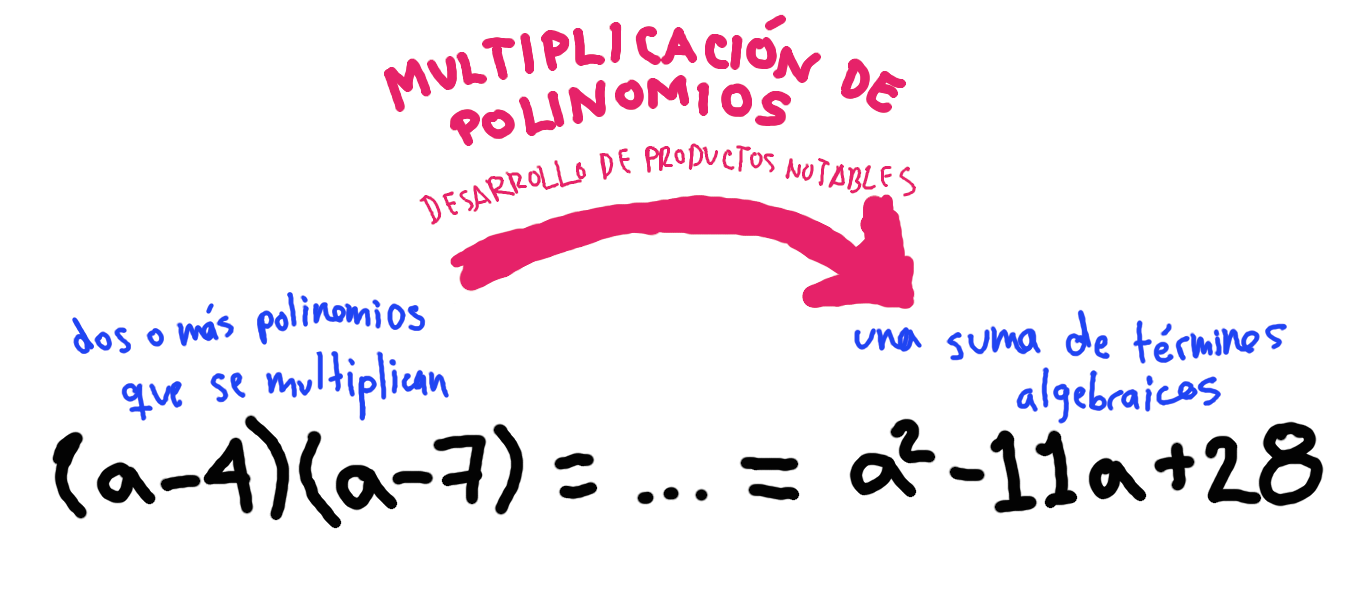 MULTIPLICACIÓN DE
POLINOMIOS
DESARROLLO DE PRODUCTOS NOTABLES
dos o más polinomios
que se multiplican
una suma de términos
algebraicos
(a-4)(a-7) = ... = a²-11a+28